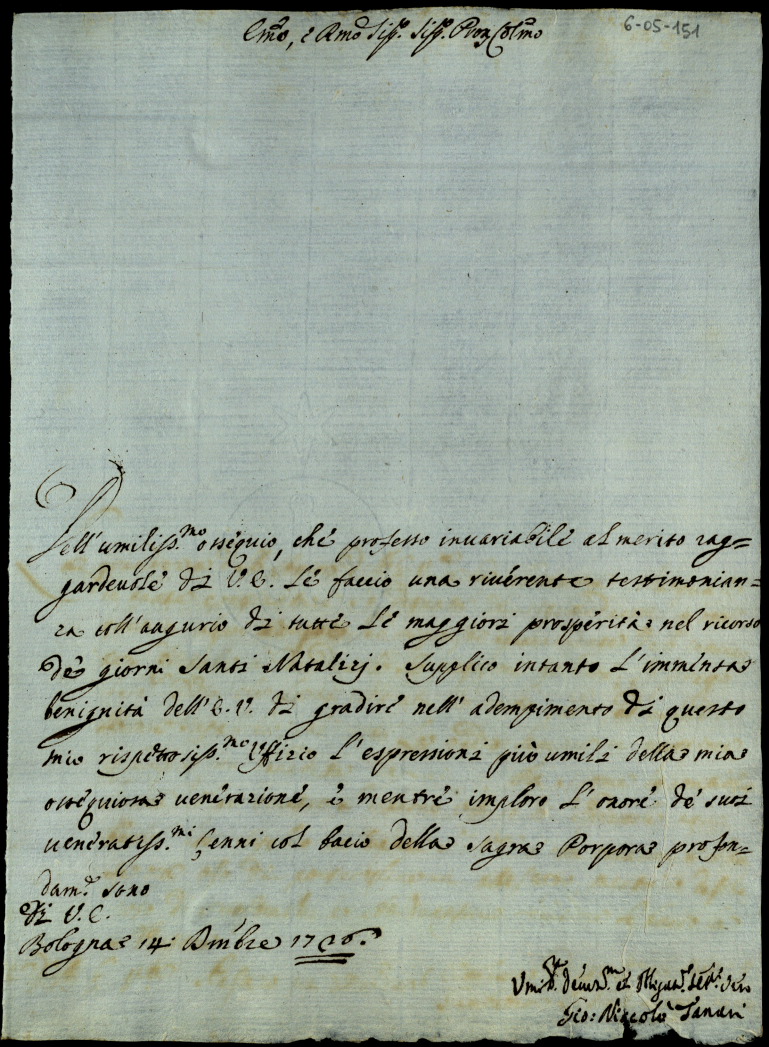 Em̃o, e Rmo Sigr. Sigr. Pron Colmo
6-05-151
Dell'umiliss.mo ossequio, che professo invariabile al merito rag=
gardevole di V.E. Le faccio una riverente testimonian=
za coll'augurio di tutte le maggiori prosperità nel ricorso
de' giorni Santi Natalizj. Supplico intanto l'immensa
benignità dell'E.V. di gradire nell'adempimento di questo
mio rispettosiss.mo Uffizio l'espressioni più umili della mia
ossequiosa venerazione, e mentre imploro l'onore de' suoi
veneratiss.mi Cenni col bacio della Sagra Porpora profon=
dam.e sono
Di V.E.
Bologna 14: Dmbre 1726.
Umil.o Devot.m et Obligat.o Ser.e Vero
Gio: Niccolò Tanari